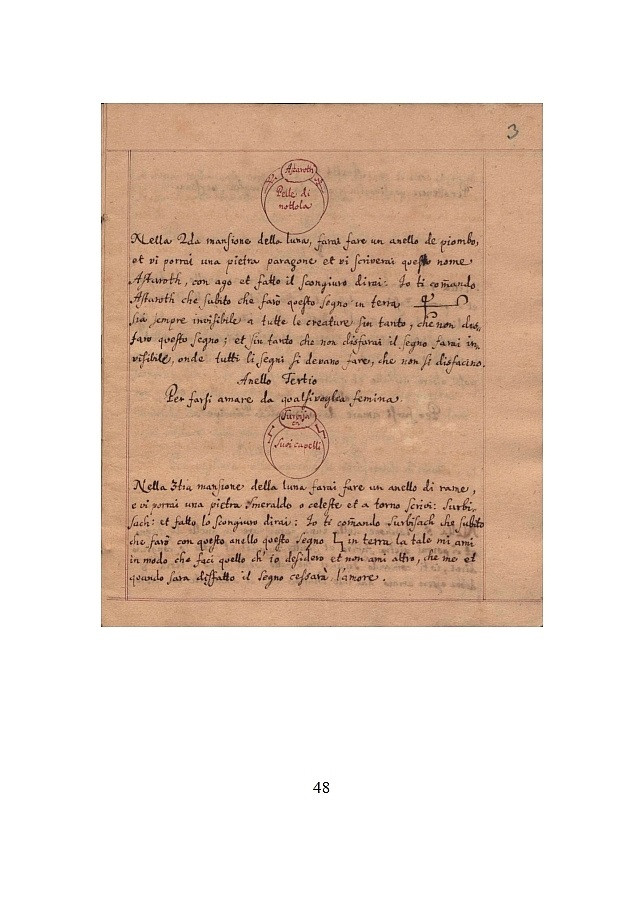 3
Astaroth
Pelle di
nottola
Nella 2da mansione della luna, farai fare un anello de piombo,
et vi porrai una pietra paragone et vi scriverai questo nome
Astaroth, con ago et fatto il scongiuro dirai: Io ti comando
Astaroth che subito che farò questo segno in terra
sia sempre invisibile a tutte le creature sin tanto, che non dis,
farò questo segno; et sin tanto che non disfarai il segno sarai in,
visibile, onde tutti li segni si devano fare, che non si disfacino.
Anello Tertio
Per farsi amare da qualsivoglia femina.
Surbisa
ch
Suoi capelli
Nella 3tia mansione della luna farai fare un anello di rame,
e vi porrai una pietra smeraldo o celeste et a torno scrivi: Surbi,
sach: et fatto lo scongiuro dirai: Io ti comando Surbisach che subito
che farò con questo anello questo segno in terra la tale mi ami
in modo che faci quello ch' io desidero et non ami altro, che me et
quando sara disfatto il segno cessarà l'amore.
48